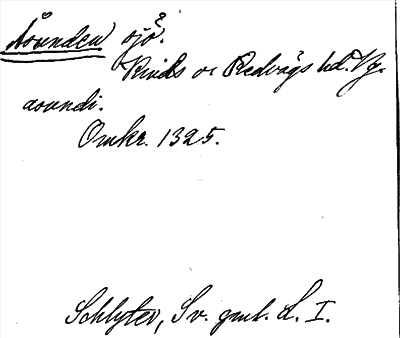 Åsunden sjö.
Kinds o. Redvägs hd. Vg.
asundi.
Omkr. 1325.
Schlyter, Sv. gml. L. I.